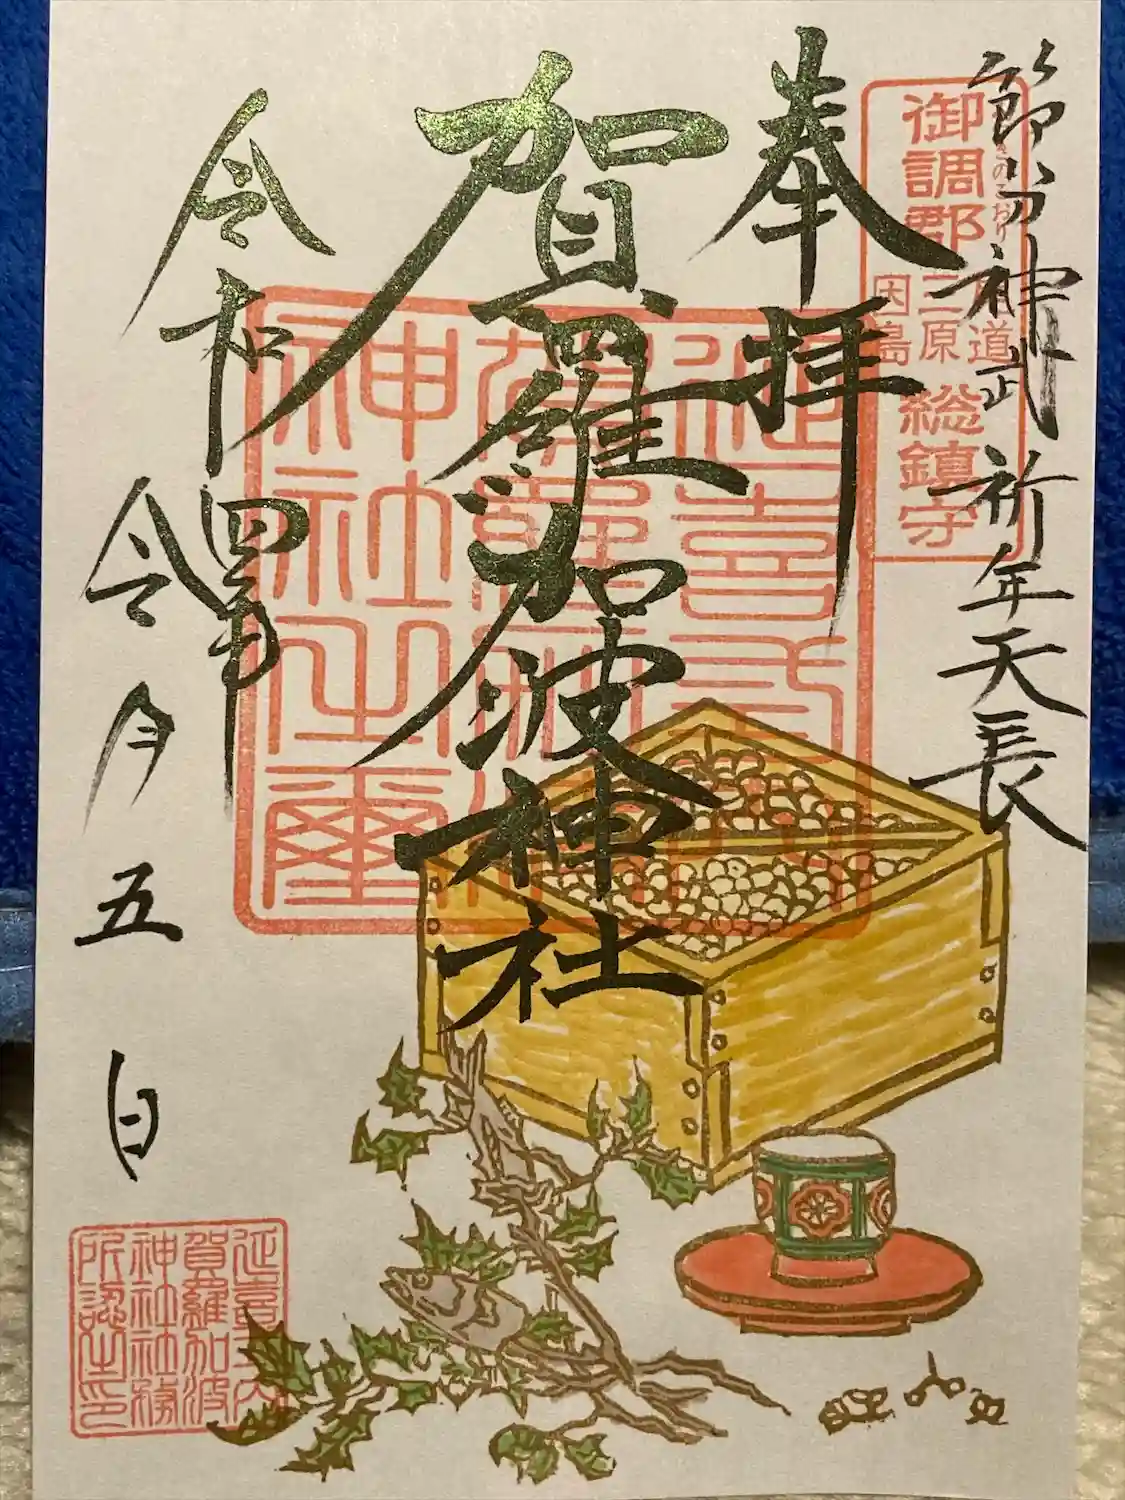 節分神武祈年天長
御調郡
きのこおり
道
三原
因島
総鎮守
奉拝
賀羅加波神社
延喜式内
賀羅加波
神社之璽
令和四年
令月五日
延喜式内
賀羅加波
神社社務
所認之印